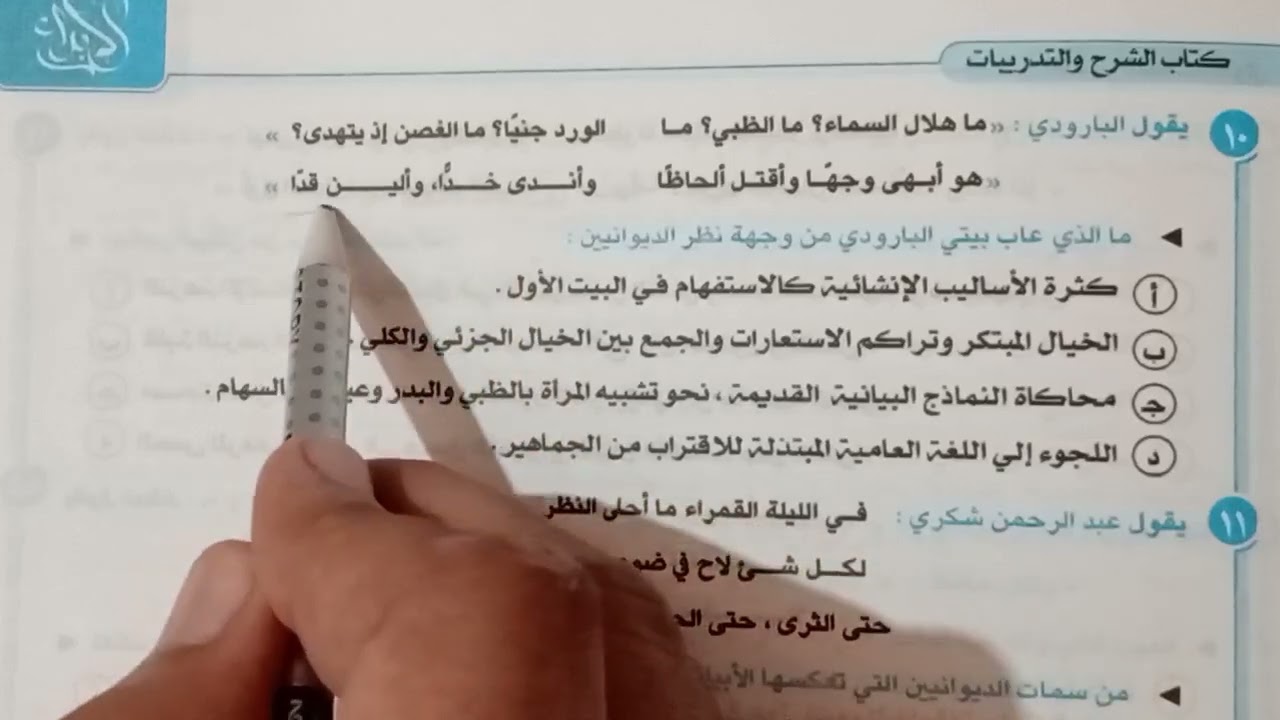 كتاب الشرح والتدريبات
١٠ يقول البارودي : « ما هلال السماء؟ ما الظبي؟ ما الورد جنيًا؟ ما الغصن إذ يتهدى؟ »
« هو أبهى وجهًا وأقتل ألحاظًا وأندى خدًّا، وألين قدًا »
◀ ما الذي عاب بيتي البارودي من وجهة نظر الديوانيين :
أ كثرة الأساليب الإنشائية كالاستفهام في البيت الأول .
ب الخيال المبتكر وتراكم الاستعارات والجمع بين الخيال الجزئي والكلي .
ج محاكاة النماذج البيانية القديمة ، نحو تشبيه المرأة بالظبي والبدر السهام .
د اللجوء إلي اللغة العامية المبتذلة للاقتراب من الجماهير .
١١ يقول عبد الرحمن شكري : في الليلة القمراء ما أحلى النظر
لكل شئ لاح في
حتى الثرى ، حتى
◀ من سمات الديوانيين التي تعكسها
2